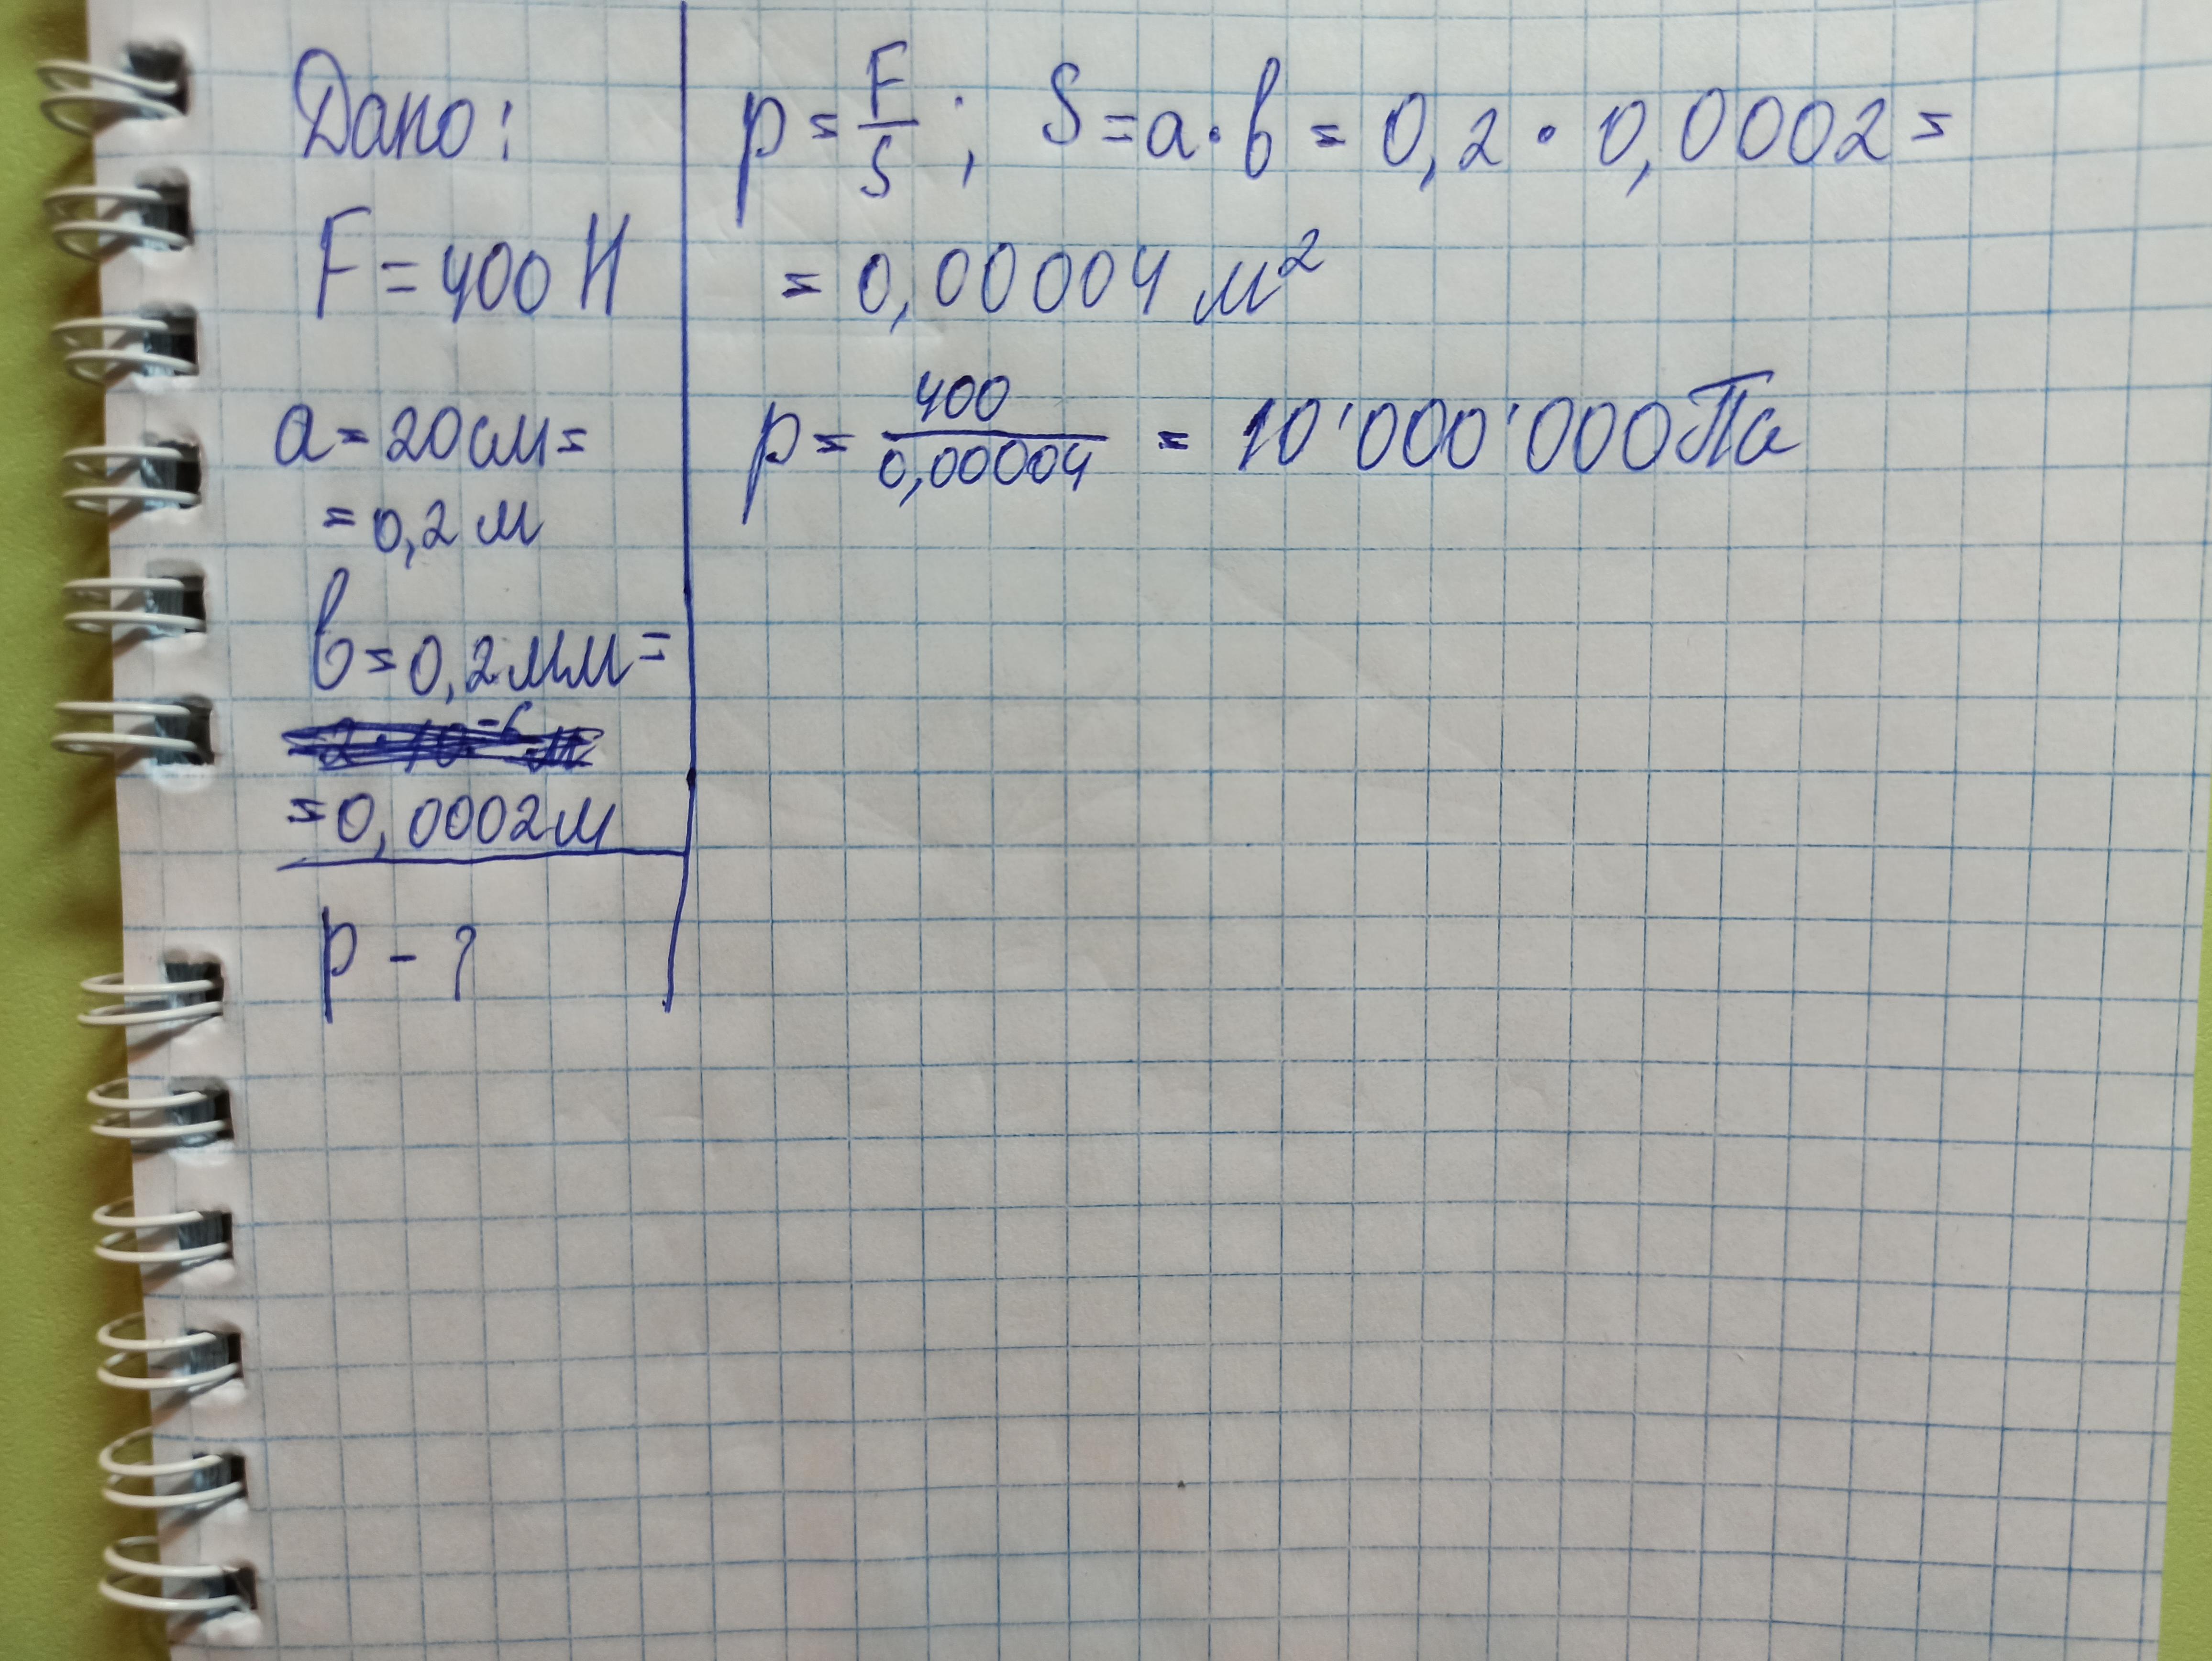 Дано:
F = 400 Н
a = 20 см =
= 0,2 м
b = 0,2 мм =
= 0,0002 м
p - ?
p = F/S ; S = a · b = 0,2 · 0,0002 =
= 0,00004 м²
p = 400/0,00004 = 10'000'000 Па